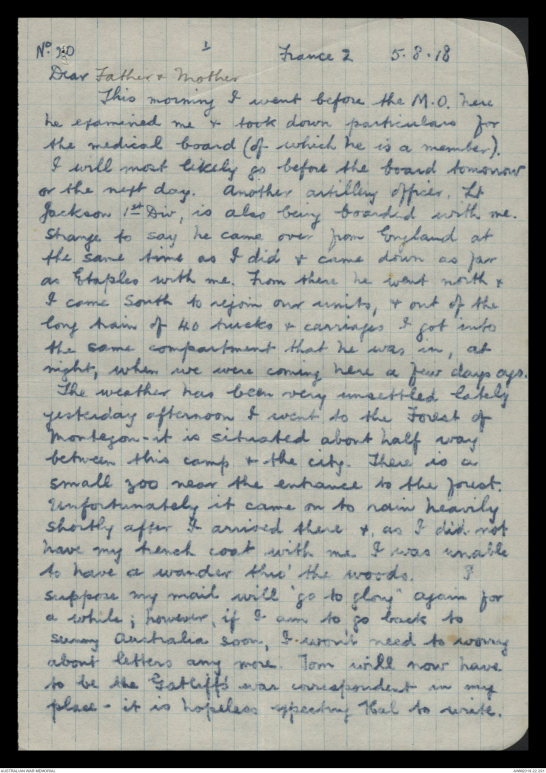 No 20 1 France 2 5.8.18
Dear Father & Mother
This morning I went before the M.O. here
he examined me & took down particulars for
the medical board (of which he is a member).
I will most likely go before the board tomorrow
or the next day. Another artillery officer, Lt
Jackson 1st Div, is also being boarded with me.
Strange to say he came over from England at
the same time as I did & came down as far
as Etaples with me. From there he went north &
I came South to rejoin our units, & out of the
long train of 40 trucks & carriages I got into
the same compartment that he was in, at
night, when we were coming here a few days ago.
The weather has been very unsettled lately
yesterday afternoon I went to the Forest of
Montegon - it is situated about half way
between this camp & the city. There is a
small zoo near the entrance to the forest.
Unfortunately it came on to rain heavily
shortly after I arrived there &, as I did not
have my trench coat with me I was unable
to have a wander thro' the woods. I
suppose my mail will "go to glory" again for
a while; however, if I am to go back to
sunny Australia soon, I won't need to worry
about letters any more. Tom will now have
to be the Gatliff's war correspondent in my
place - it is hopeless expecting Hal to write.
AUSTRALIAN WAR MEMORIAL